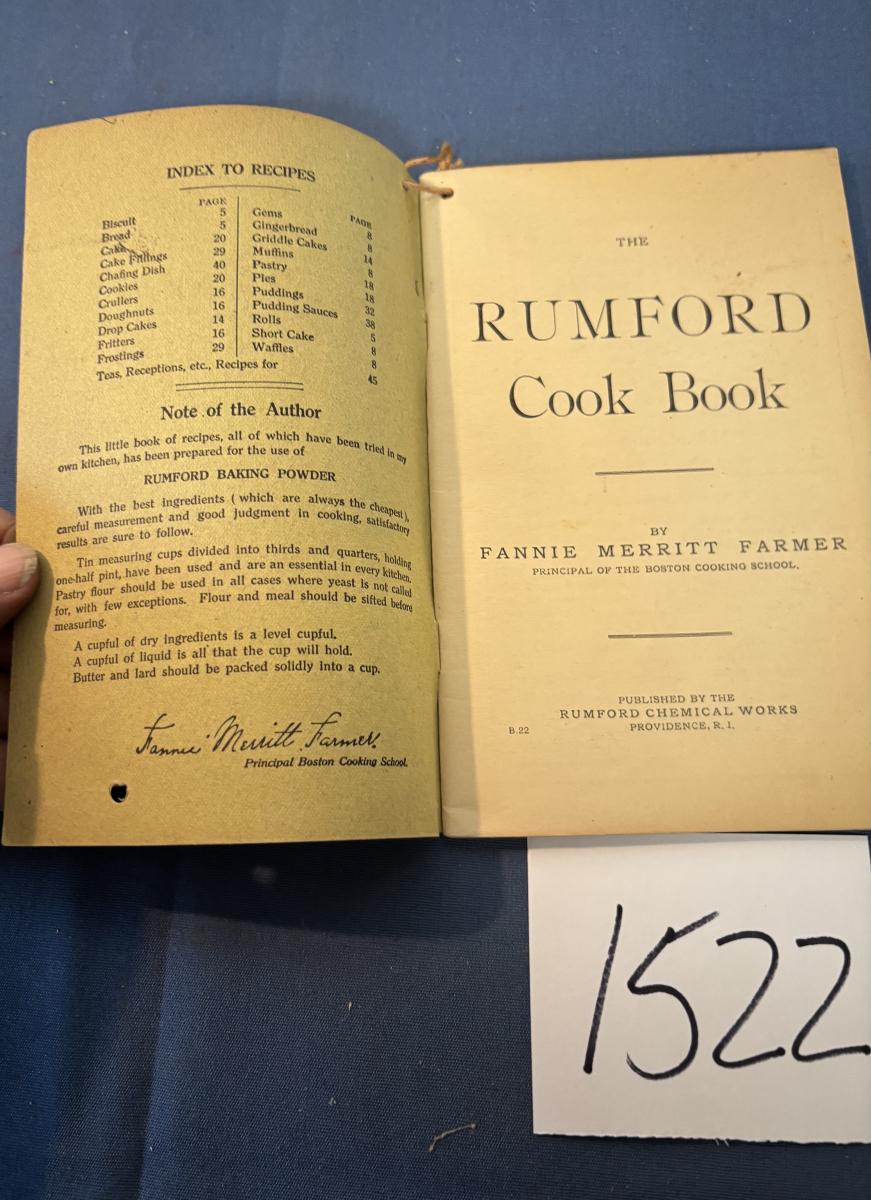 INDEX TO RECIPES
PAGE
Biscuit 5
Bread 5
Cake 20
Cake Fillings 29
Chafing Dish 40
Cookies 20
Crullers 16
Doughnuts 16
Drop Cakes 14
Fritters 16
Frostings 29
PAGE
Gems 8
Gingerbread 8
Griddle Cakes 14
Muffins 8
Pastry 18
Pies 18
Puddings 32
Pudding Sauces 38
Rolls 5
Short Cake 8
Waffles 8
Teas, Receptions, etc., Recipes for 45
Note of the Author
This little book of recipes, all of which have been tried in my
own kitchen, has been prepared for the use of
RUMFORD BAKING POWDER
With the best ingredients ( which are always the cheapest ),
careful measurement and good judgment in cooking, satisfactory
results are sure to follow.
Tin measuring cups divided into thirds and quarters, holding
one-half pint, have been used and are an essential in every kitchen.
Pastry flour should be used in all cases where yeast is not called
for, with few exceptions. Flour and meal should be sifted before
measuring.
A cupful of dry ingredients is a level cupful.
A cupful of liquid is all that the cup will hold.
Butter and lard should be packed solidly into a cup.
Fannie Merritt Farmer.
Principal Boston Cooking School.
THE
RUMFORD
Cook Book
BY
FANNIE MERRITT FARMER
PRINCIPAL OF THE BOSTON COOKING SCHOOL.
PUBLISHED BY THE
RUMFORD CHEMICAL WORKS
PROVIDENCE, R. I.
B.22
1522